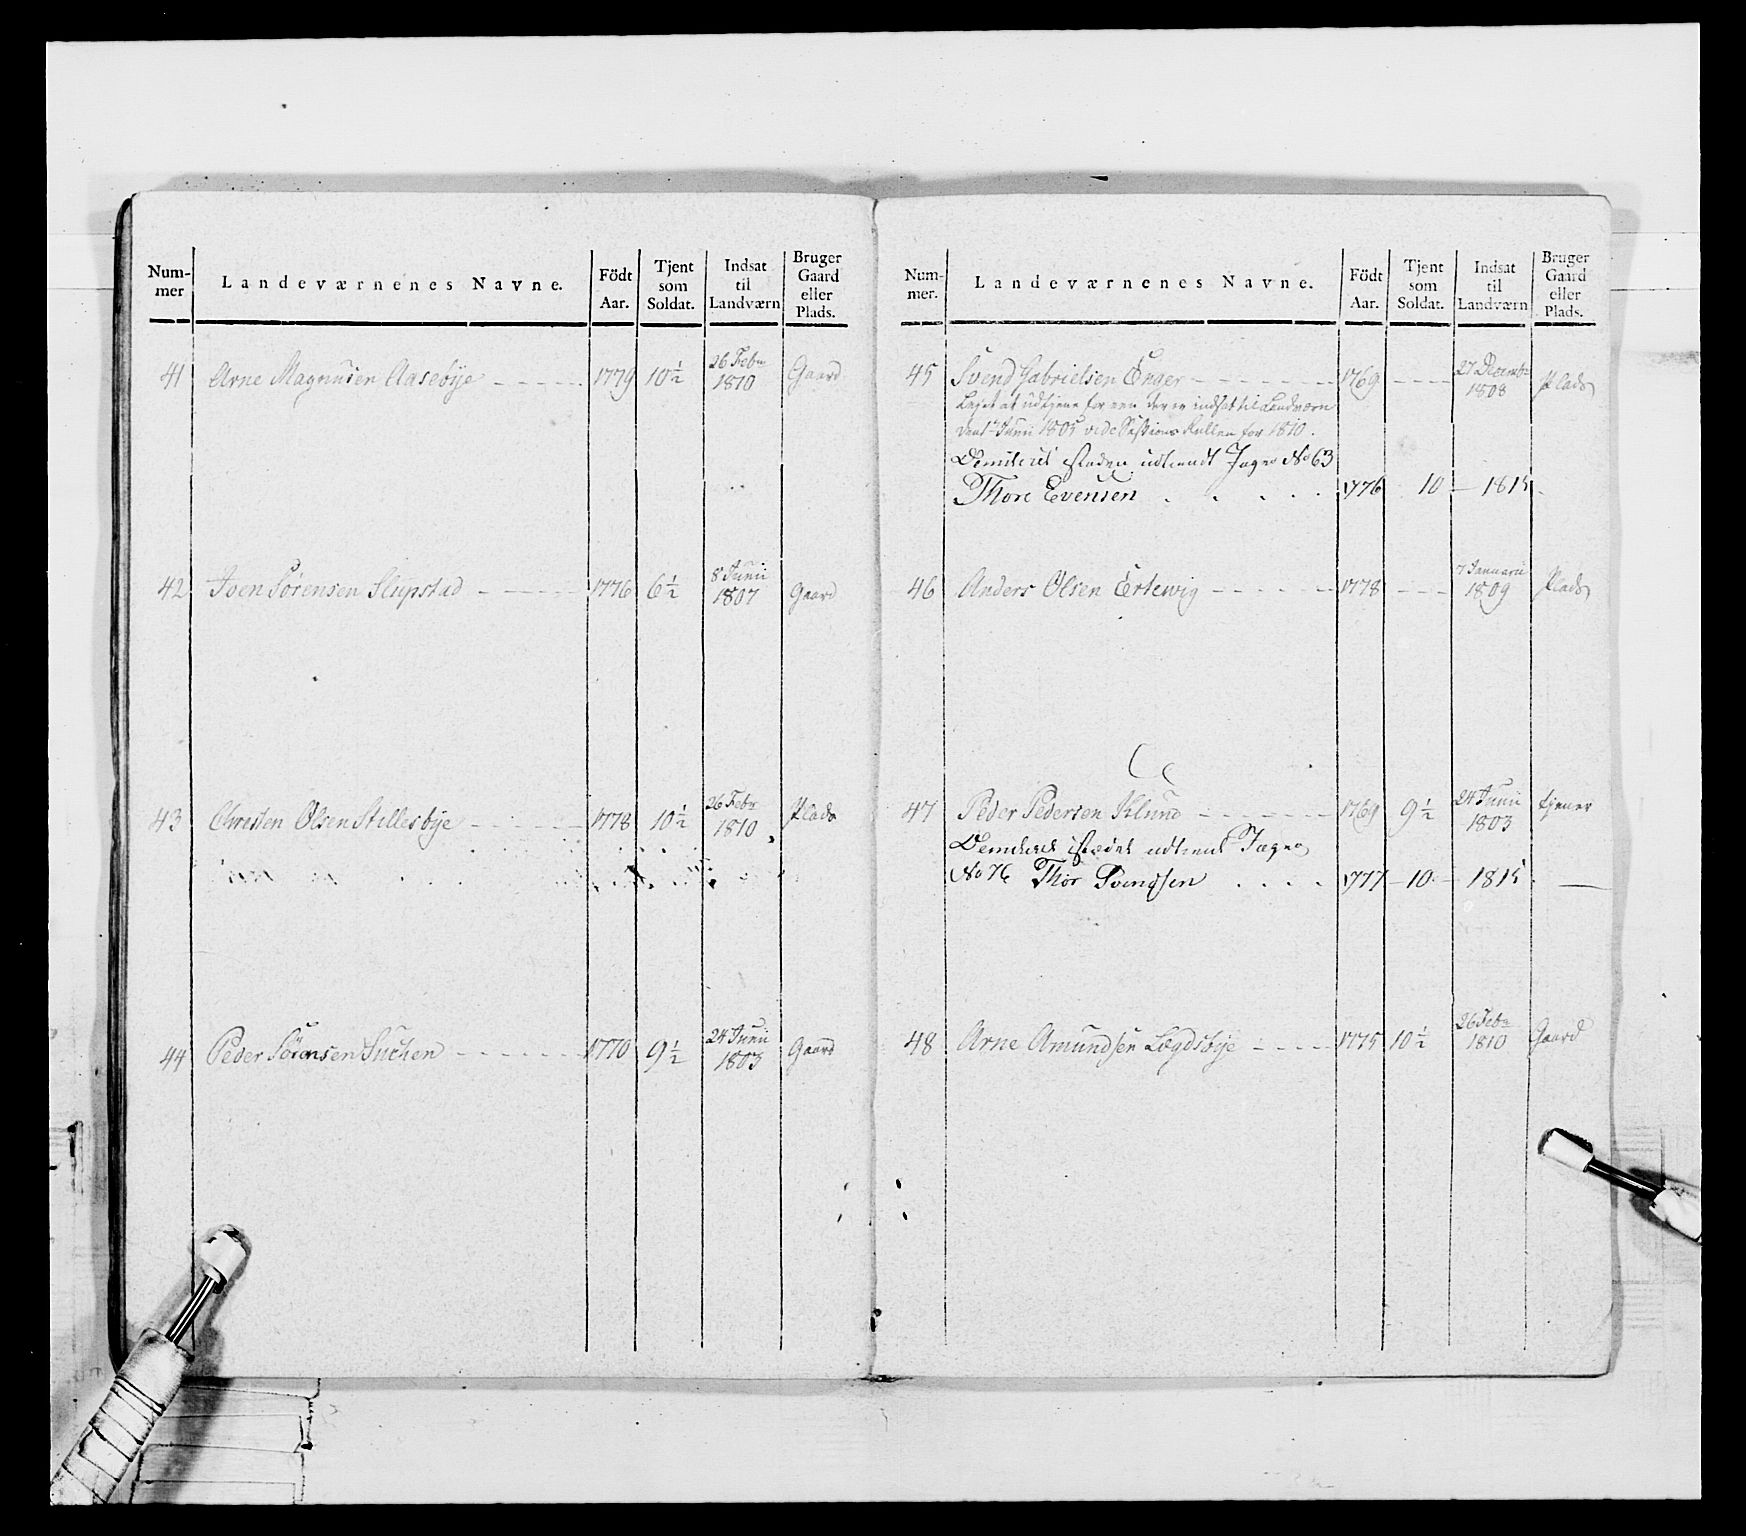 Num-
mer
Landeværnenes Navne.
Födt
Aar.
Tjent
som
Soldat.
Indsat
til
Landværn
Bruger
Gaard
eller
Plads.
41 Arne Magnusen Aasebye 1779 10 1/2 26 Febr 1810 Gaard
42 Joen Sörensen Slupstad 1776 6 1/2 8 Junii 1807 Gaard
43 Christen Olsen Stillesbye 1778 10 1/2 26 Febr 1810 Plads
44 Peder Sörensen 1770 9 1/2 24 Junii 1803 Gaard
Num-
mer.
Landeværnenes Navne.
Födt
Aar.
Tjent
som
Soldat.
Indsat
til
Landværn
Bruger
Gaard
eller
Plads.
45 Svend Gabrielsen Enger 1769 27 Decembr 1808 Plads
Lejet at udtjene for een der er indsat til Landværn
den 1te Junii 1805 vide Sessions Rullen for 1810.
Demiteret isteden udtient Jæger No 63
Thore Evensen 1776 10 1815
46 Anders Olsen Ertevig 1778 7 Januarii 1809 Plads
47 Peder Pedersen Klund 1769 9 1/2 24 Junii 1803 tjener
Demiteret istedet udtient Jæger
No 76 Thor Svendsen 1777 10 1815
48 Arne Amundsen Lægdsbye 1775 10 1/2 26 Febr 1810 Gaard